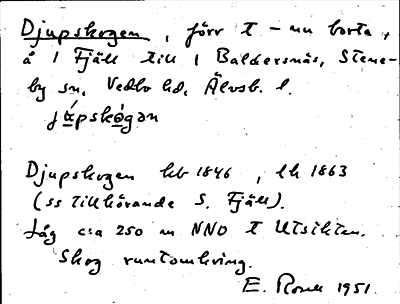 Djupskogen, förr t – nu borta,
å 1 Fjäll till 1 Baldersnäs, Stene-
by sn, Vedbo hd, Älvsb. l.
Djupskogen hb 1846, lk 1863
(ss tillhörande S. Fjäll).
Låg c:a 250 m NNO t Utsikten.
Skog runtomkring.
E. 1951.